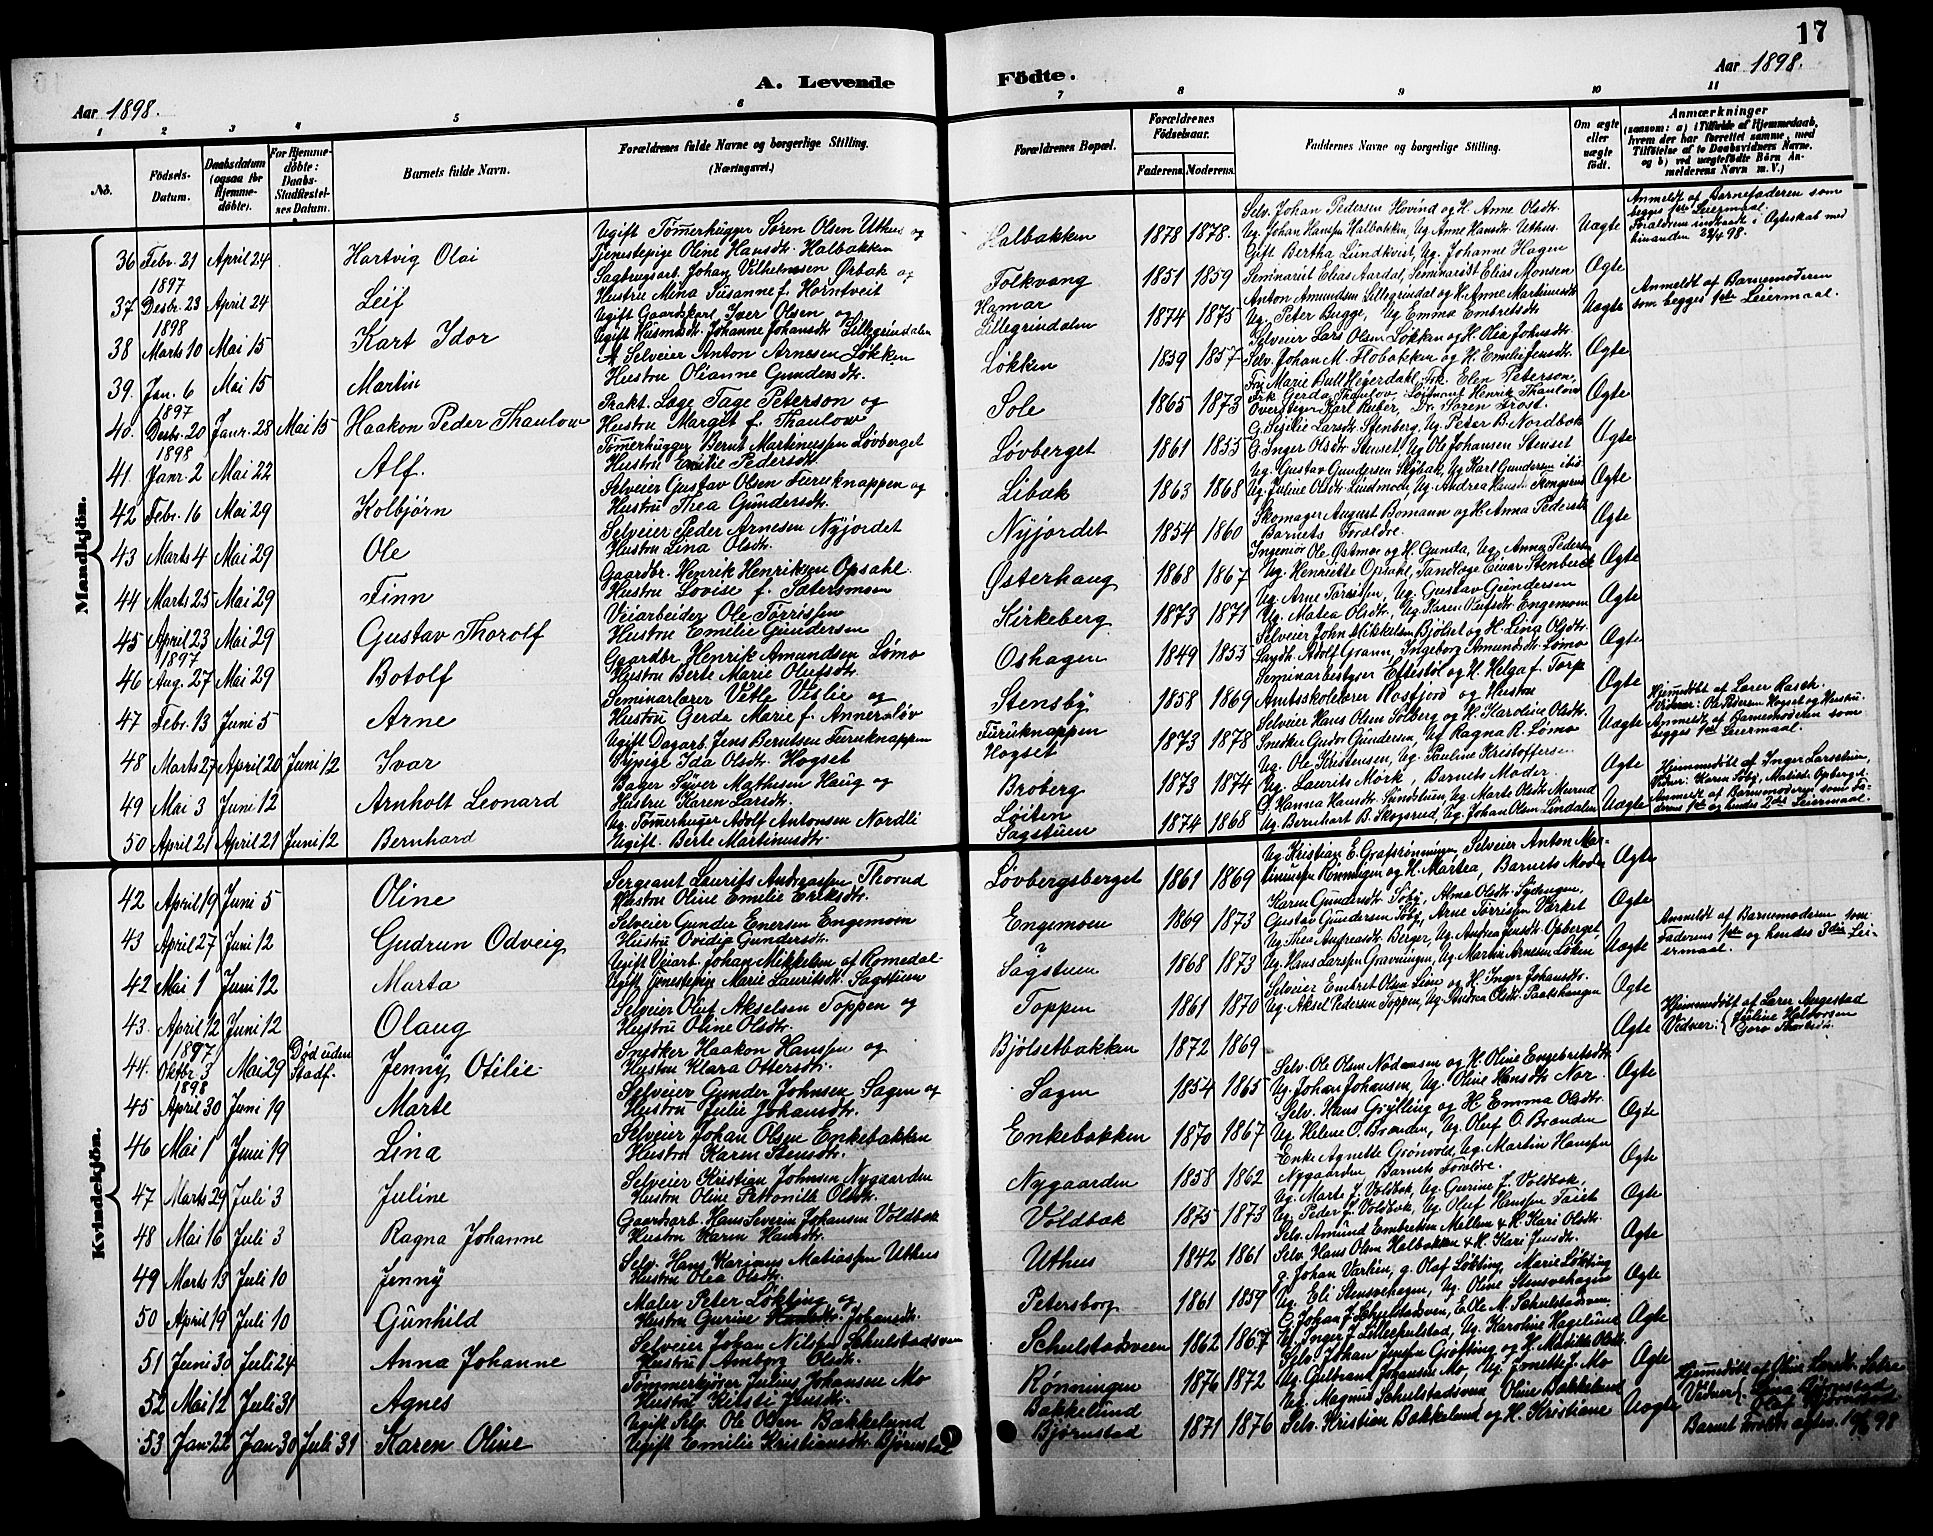 17
Aar 1898.
A. Levende Födte.
Aar 1898.
1 2 3 4 5 6 7 8 9 10 11
No.
Födsels-Datum.
Daabsdatum (ogsaa for Hjemme-döbte).
For Hjemme-döbte: Daabs-Stadfæstel-ses Datum.
Barnets fulde Navn.
Forældrenes fulde Navne og borgerlige Stilling. (Næringsvei.)
Forældrenes Bopæl.
Forældrenes Födselsaar.
Faderens. Moderens.
Faddernes Navne og borgerlige Stilling.
Om ægte eller uægte födt.
Anmærkninger
(saasom: a) i Tilfælde af Hjemmedaab, hvem der har forrettet samme, med Tilföielse af to Daabsvidners Navne, og b) ved uægtefödte Börn An-melderens Navn m. V.)
Mandkjön.
36 Febr. 21 April 24 Hartvig Olai
Ugift Tømmerhugger Søren Olsen Uthus og
Tjenestepige Oline Hansdt. Halbakken
Halbakken 1878 1878.
Selv. Johan Pedersen Hovind og H. Anne Olsdt.
Ug. Johan Hansen Halbakken, Ug. Anne Hansdt. Uthus.
Uægte
Anmeldt af Barnefaderen som
begges 1ste Leiermaal.
Forældrene indtraadt i Ægteskab med
hinanden 22/4 98.
1897
37 Desbr. 23 April 24 Leif
Sagbrugsarb. Johan Vilhelmsen Ørbak og
Hustru Mina Susanne f. Horntveit
Folkvang
Hamar 1851 1859
Gift Bertha Lundkvist, Ug. Johanne Hagen
Seminarist Elias Aardal, Seminarist Elias Monsen
Ægte
1898
38 Marts 10 Mai 15 Kart Idor
Ugift Gaardskarl Iver Olsen og
Ugift Husmdt. Johanne Johansdt. Lillegrindalen
Lillegrindalen 1874 1875
Anton Amundsen Lillegrindal og H. Anne Martinusdt.
Ug. Peter Bugge, Ug. Emma Embretsdt.
Uægte
Anmeldt af Barnemoderen
som begges 1ste Leiermaal.
39. Jan. 6 Mai 15 Martin
Selveier Anton Arnesen Løkken
Hustru Olianne Gundersdt.
Løkken 1859 1857
Selveier Lars Olsen Løkken og H. Olia Johnsdt.
Selv. Johan M. Flobakken og H. Emilie Jensdt.
Ægte
1897
40. Desbr. 20 Janr. 28 Mai 15 Haakon Peder Thaulow
Prakt. Læge Tage Peterson og
Hustru Margit f. Thaulow
Sole 1865 1873
Fru Marie Bull Heyerdahl, Frk. Elen Peterson,
Frk Gerda Thaulov, Løitnant Henrik Thaulow
Overstiger Karl Huber, Dr. Søren Frost.
Ægte
1898
41. Janr. 2 Mai 22 Alf.
Tømmerhugger Bernt Martinussen Løvberget
Hustru Emilie Pedersdt.
Løvberget 1861 1855
G. Sesilie Larsdt. Stenberg, Ug. Peter B. Nordbak
G. Inger Olsdt. Stenset, Ug. Ole Johansen Stenset
Ægte
42 Febr. 16 Mai 29 Kolbjørn
Selveier Gustav Olsen Furuknappen og
Hustru Thea Gundersdt.
Libak 1863 1868
Ug. Gustav Gundersen Skybak, Ug. Karl Gundersen ibid.
Ug. Juline Olsdt. Lindmoen, Ug. Andrea Hansdt. Skogsrud
Ægte
43 Marts 4 Mai 29 Ole
Selveier Peder Arnesen Nyjordet
Hustru Lina Olsdt.
Nyjordet 1854 1860
Skomager August Bomann og H. Anna Pedersdt.
Barnets Forældre.
Ægte
44 Marts 25 Mai 29 Finn
Gaardbr. Henrik Henriksen Opsahl.
Hustru Lovise f. Sætersmoen
Østerhaug 1868 1867
Ingeniør Ole Østmoe og H. Gunda, Ug. Anna Pedersen
Ug. Henriette Opsahl, Tandlæge Einar Stenberg
Ægte
45 April 23 Mai 29 Gustav Thorolf
Veiarbeider Ole Tørrissen
Hustru Emilie Gundersen
Kirkeberg 1873 1871
Ug. Arne Tørrissen, Ug. Gustav Gundersen
Ug. Matea Olsdt. Ug. Karen Olufsdt. Engemoen
Ægte
1897
46 Aug. 27 Mai 29 Botolf
Gaardbr Henrik Amundsen Lømo
Hustru Berte Marie Olufsdt.
Oshagen 1849 1855
Selveier John Mikkelsen Bjølset og H. Lina Olsdt.
Sagdh. Adolf Grann, Ingeborg Amundsdt. Lømo
Ægte
47 Febr. 13 Juni 5 Arne
Seminarlærer Vetle Vislie og
Hustru Gerda Marie f. Annersløv
Stensby 1858 1869
Seminarbestyrer Eftestøl og H. Helga f. Torp
Amtsskolelærer Rosfjord og Hustru
Ægte
48 Marts 27 April 20 Juni 12 Ivar
Ugift Dagarb. Jens Berntsen Furuknappen
Ug. pige Ida Olsdt. Hogset
Furuknappen
Hogset 1873 1878
Selveier Hans Olsen Solberg og H. Karoline Olsdt.
Snedker Gudor Gundersen, Ug. Ragna R. Lømo
Uægte
Hjemmedøbt af Lærer Rasch.
Vidner: Ole Pedersen Hogset og Hustru.
Anmeldt af Barnemoderen som
begges 1ste Leiermaal.
49 Mai 3 Juni 12 Arnholt Leonard
Bager Syver Mathisen Haug og
Hustru Karen Larsdt.
Broberg 1873 1874
Ug. Ole Kristensen, Ug. Pauline Kristoffersen
Ug. Laurits Mørk, Barnets Moder.
Ægte
50 April 21 April 21 Juni 12 Bernhard
Ug. Tømmerhuger Adolf Antonsen Nordli
Ugift. Berte Martinusdt.
Løiten
Sagstuen 1874 1868
G. Hanna Hansdt. Sundstuen, Ug. Marte Olsdt. Murud
Ug. Bernhart B. Skogsrud, Ug. Johan Olsen Lindalen
Uægte
Hjemmedøbt af Inger Larsstuen,
Vidner: Karen Soby, Matilde Opberget.
Anmeldt af Barnemoderen som Fa-
derens 1ste og hendes 2det Leiermaal.
Kvindekjön.
42 April 19 Juni 5 Oline
Sergeant Laurits Andreassen Thorud
Hustru Oline Emilie Eriksdt.
Løvbergsberget 1861 1869
Ug. Kristian E. Grafsrønningen, Selveier Anton Mar-
tinussen Rønningen og H. Martea, Barnets Moder
Ægte
43 April 27 Juni 12 Gudrun Odveig
Selveier Gunder Enersen Engemoen
Hustru Ovidia Gundersdt.
Engemoen 1869 1873
Karen Gundersdt. Soby, Alma Olsdt. Sydengen,
Gustav Gundersen Soby, Arne Tørrissen Varket
Ægte
42 Mai 1 Juni 12 Marta
Ugift Veiarb. Johan Mikkelsen af Romedal
Ugift Tjenestepige Marie Lauritsdt. Sagstuen
?
Sagstuen 1868 1873
Ug. Thea Andreasdt. Berger, Ug. Andrea Jensdt. Opberget
Ug. Hans Larssen Gravningen, Ug. Martin Arnesen Løken
Uægte
Anmeldt af Barnemoderen som
Faderens 1ste og hendes 3die Lei-
ermaal.
43. April 12 Juni 12 Olaug
Selveier Oluf Akselsen Toppen og
Hustru Oline Olsdt.
Toppen 1861 1870
Selveier Embret Olsen Lien og H. Inger Johansdt.
Ug. Aksel Pedersen Toppen, Ug. Andrea Olsdt. Paatshaugen
Ægte
1897
44. Oktbr. 3 Mai 29 Død uden Stadf. Jenny Otilie
Snedker Haakon Hanssen og
Hustru Klara Ottersdt.
Bjølsetbakken 1872 1869
Ægte
Hjemmedøbt af Lærer Augestad
Vidner: Juline Halvorsen
Goro Thorlsdt.
1898
45 April 30 Juni 19 Marte
Selveier Gunder Johnsen Sagen og
Hustru Julie Johansdt.
Sagen 1854 1865
Selv. Ole Olsen Nødaasen og H. Oline Engebretsdt.
Ug. Johan Johansen, Ug. Oline Hansdt. Nor.
Ægte
46 Mai 1 Juni 19 Lina
Selveier Johan Olsen Enkebakken
Hustru Karen Stensdt.
Enkebakken 1870 1867
Selv. Hans Grylling og H. Emma Olsdt.
Ug. Helene O. Brænden, Ug. Oluf O. Brænden
Ægte
47 Marts 29 Juli 3 Juline
Selveier Kristian Johnsen Nygaarden
Hustru Oline Pettonille Olsdt.
Nygaarden 1858 1862
Enke Agnette Grønvold, Ug. Martin Hanssen
Nygaarden, Barnets Forældre.
Ægte
48 Mai 16 Juli 3 Ragna Johanne
Gaardsarb. Hans Severin Johansen Voldbak
Hustru Karen Hansdt.
Voldbak 1875 1873
Ug. Marte J. Voldbak, Ug. Gurine J. Voldbak,
Ug. Peder J. Voldbak, Ug. Oluf Hanssen Taiet
Ægte
49 Marts 13 Juli 10 Jenny
Selv. Hans Karinus Matiassen Uthus
Hustru Olea Olsdt.
Uthus 1842 1861
Selv. Amund Embretsen Mellem & H. Kari Olsdt.
Selv. Hans Olsen Halbakken & H. Kari Jensdt.
Ægte
50 April 19 Juli 10 Gunhild
Maler Peter Løkting og
Hustru Gurine Johansdt.
Petersborg 1861 1859
g. Johan Varlien, g. Olaf Løkting, Marie Løkting
Ug. Eli Stensvehagen, Ug. Oline Stensvehagen
Ægte
51 Juni 30 Juli 24 Anna Johanne
Selveier Johan Nilsen Schulstadsveen
Hustru Amborg Olsdt.
Schulstadsveen 1862 1867
E. Johan J. Schulstadsveen, E. Ole M. Schulstadsveen
Ug. Inger J. Lilleschulstad, Ug. Karoline Hagelund
Ægte
52 Mai 12 Juli 31 Agnes
Tømmerkjører Julius Johansen Mo
Hustru Kirsti Jensdt.
Rønningen 1876 1872
Selv. Johan Jensen Grøfting og H. Matilde Olsdt.
Ug. Gulbrand Johansen Mo, Ug. Ernette J. Mo
Ægte
53 Jan. 22 Jan. 30 Juli 31 Karen Oline
Ugift Selv. Ole Olsen Bakkelund
Ugift Emilie Kristiansdt. Bjørnstad
Bakkelund
Bjørnstad 1871 1876
Ug. Magnus Schulstadsveen, Oline Bakkelund
Selv. Kristian Bakkelund og H. Kristiane
Uægte
Hjemmedøbt af Oline Larsdt.
Vidner: Bjørnstad
Olaf Bjørnstad
Barnet